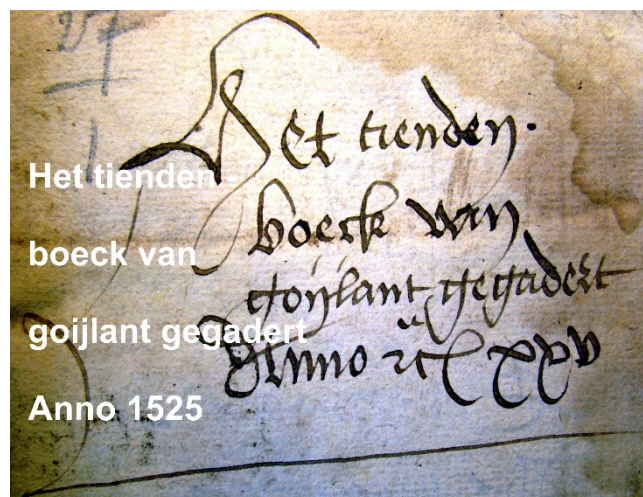 27
Het tienden -
boeck van
goijlant gegadert
Anno xvc xxv
Het tienden -
boeck van
goijlant gegadert
Anno 1525